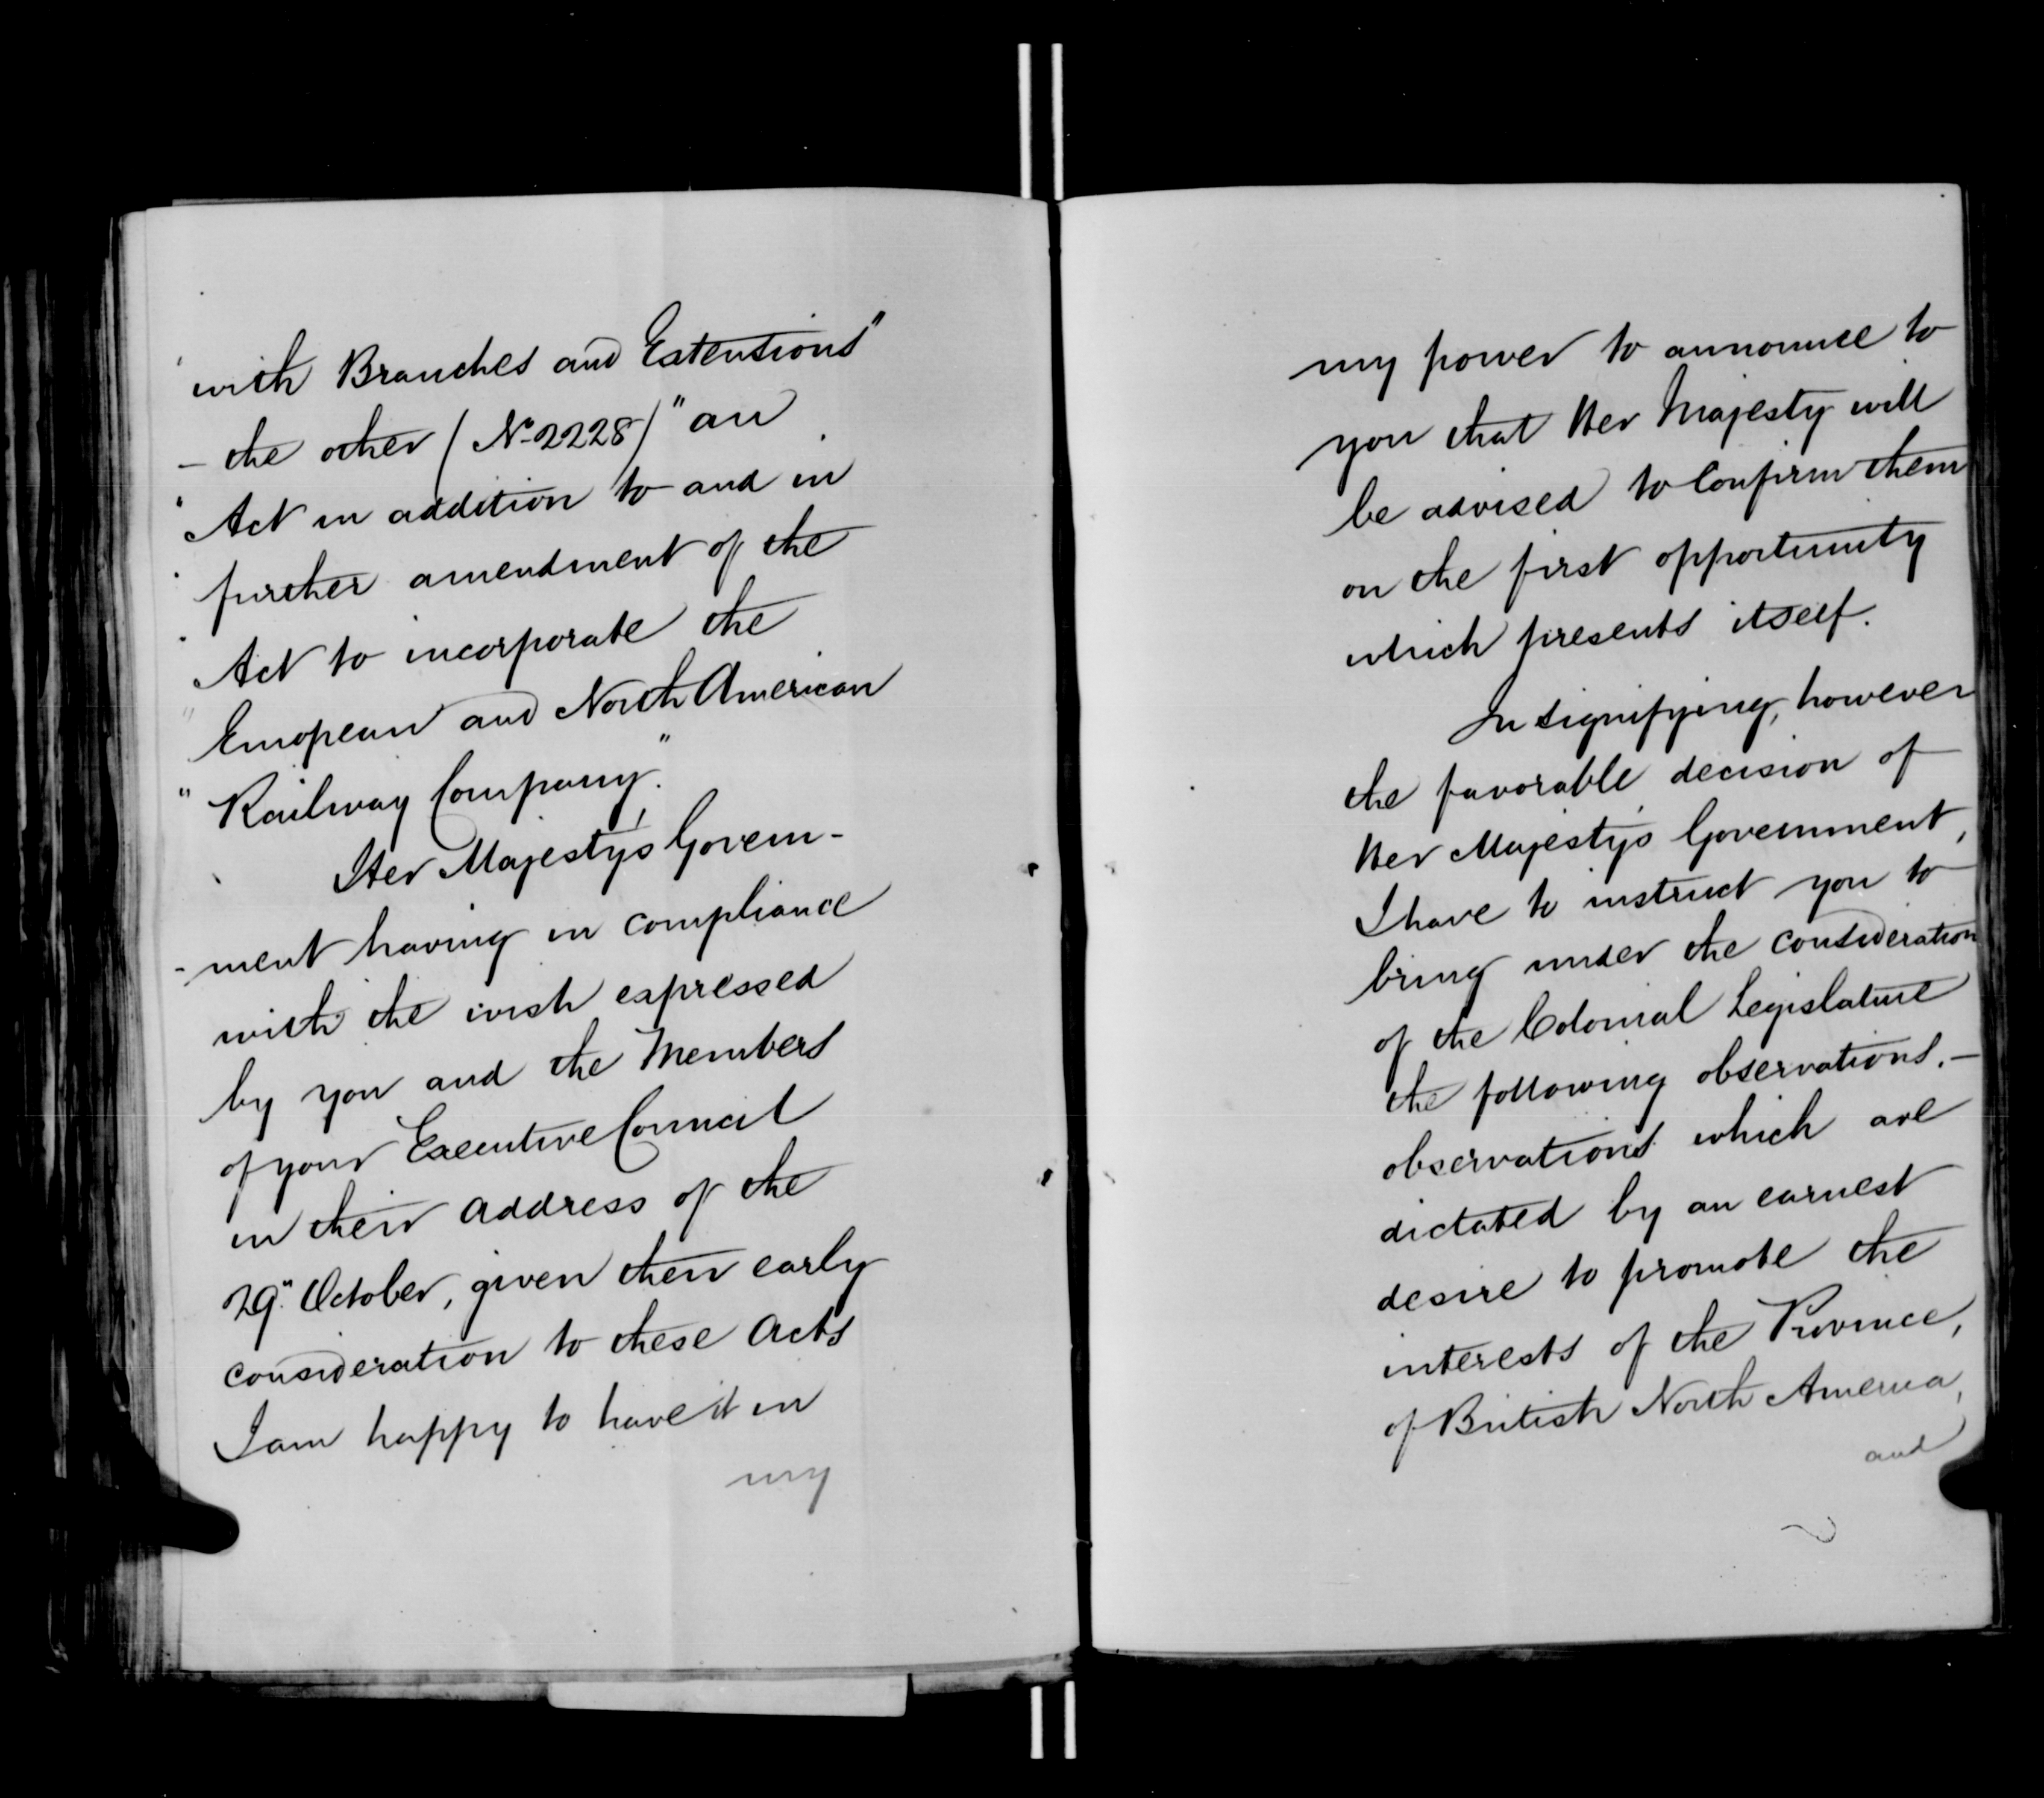 " with Branches and Extentions"
- the other (No 2228) "an
" Act in addition to and in
" further amendment of the
" Act to incorporate the
" European and North American
" Railway Company."
Her Majesty's Govern-
-ment having in compliance
with the wish expressed
by you and the Members
of your Executive Council
in their address of the
29" October, given their early
consideration to these Acts
I am happy to have it in
my
my power to announce to
you that Her Majesty will
be advised to Confirm them
on the first opportunity
which presents itself.
In signifying, however
the favorable decision of
Her Majesty's Government,
I have to instruct you to
bring under the consideration
of the Colonial Legislature
the following observations. -
observations which are
dictated by an earnest
desire to promote the
interests of the Province,
of British North America,
and